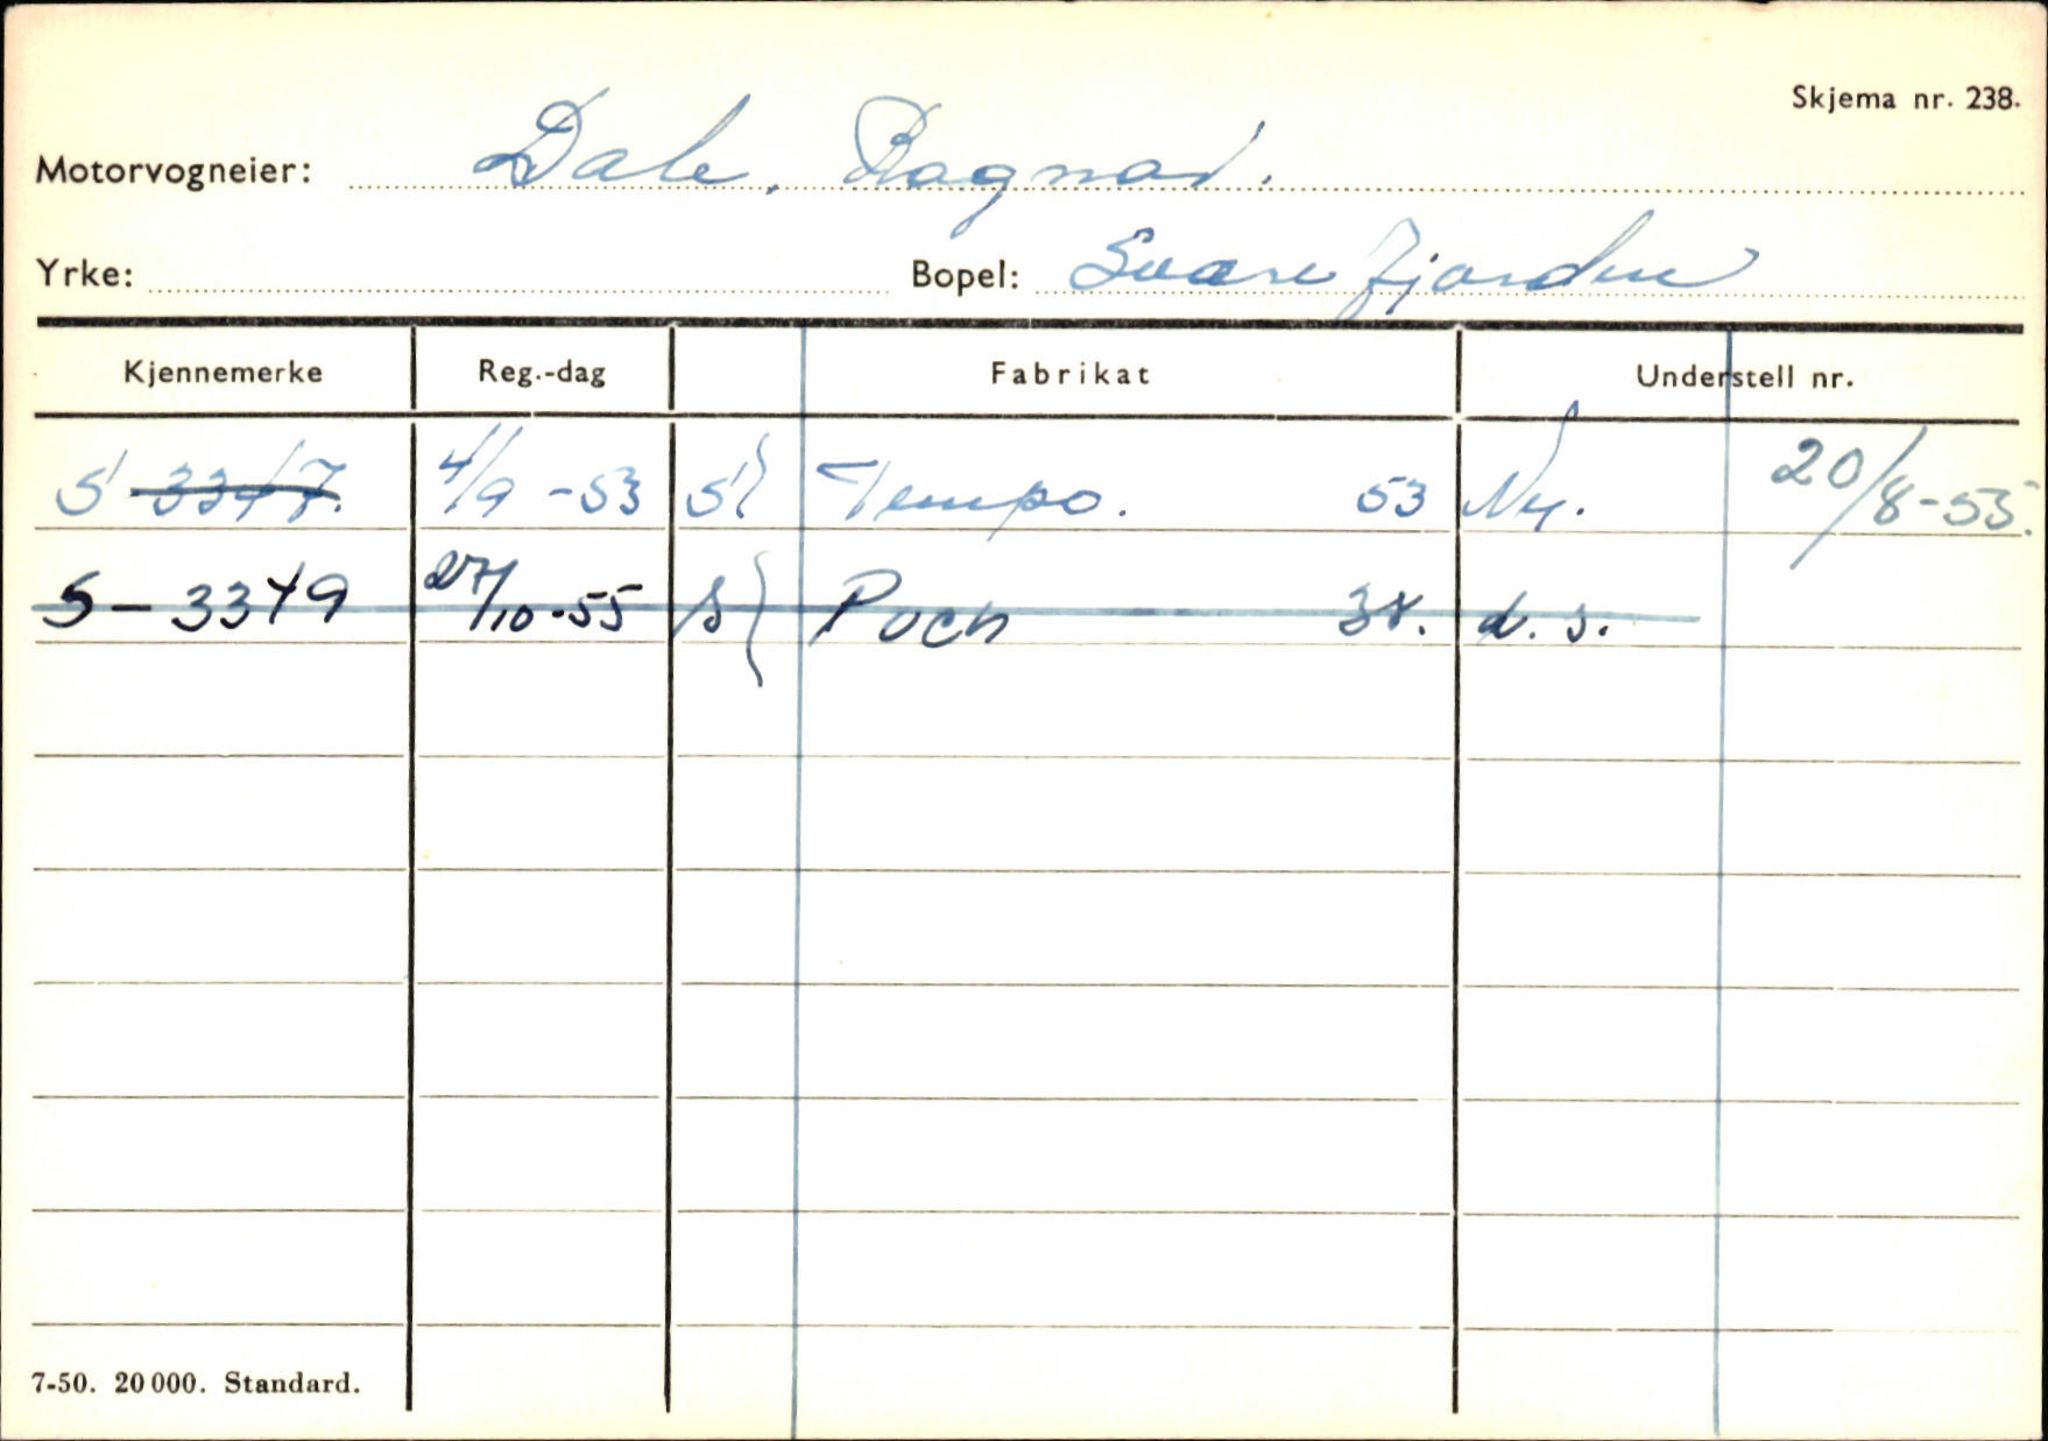 Skjema nr. 238.
Motorvogneier: Dale, Ragnar.
Yrke: Bopel: Sværefjorden
Kjennemerke Reg.-dag Fabrikat Understell nr.
S 3347. 4/9 -53 S Tempo. 53 Ny. 20/8-55.
S - 3349 27/10-55 S Puch 38. d. s.
7-50. 20 000. Standard.